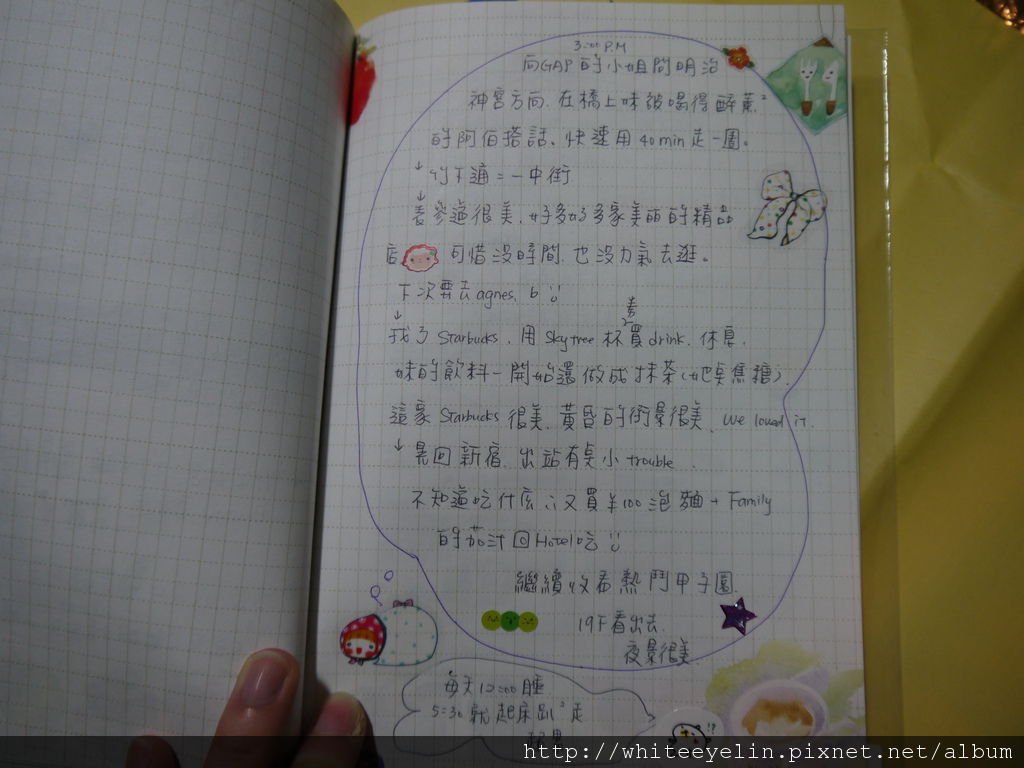 3:00 P.M
向GAP的小姐問明治
神宮方向、在橋上味被喝得醉薰²
的阿伯搭話、快速用40min走一圈。
↓竹下通=一中街
↓表參道很美、好多好多家美麗的精品
店 可惜沒時間、也沒力氣去逛。
下次再去agnes. b
↓
找了Starbucks、用Skytree杯券買drink、休息、
妹的飲料一開始還做成抹茶(她點焦糖)、
這家Starbucks很美、黃昏的街景很美、we loved it.
↓晃回新宿、出站有點小trouble、
不知道吃什麼∴又買¥100泡麵+Family
的茄汁回Hotel吃
繼續收看熱鬥甲子園、
19F看出去、
夜景很美
每天12:00睡
5:30就起床趴²走
http://whiteeyelin.pixnet.net/album